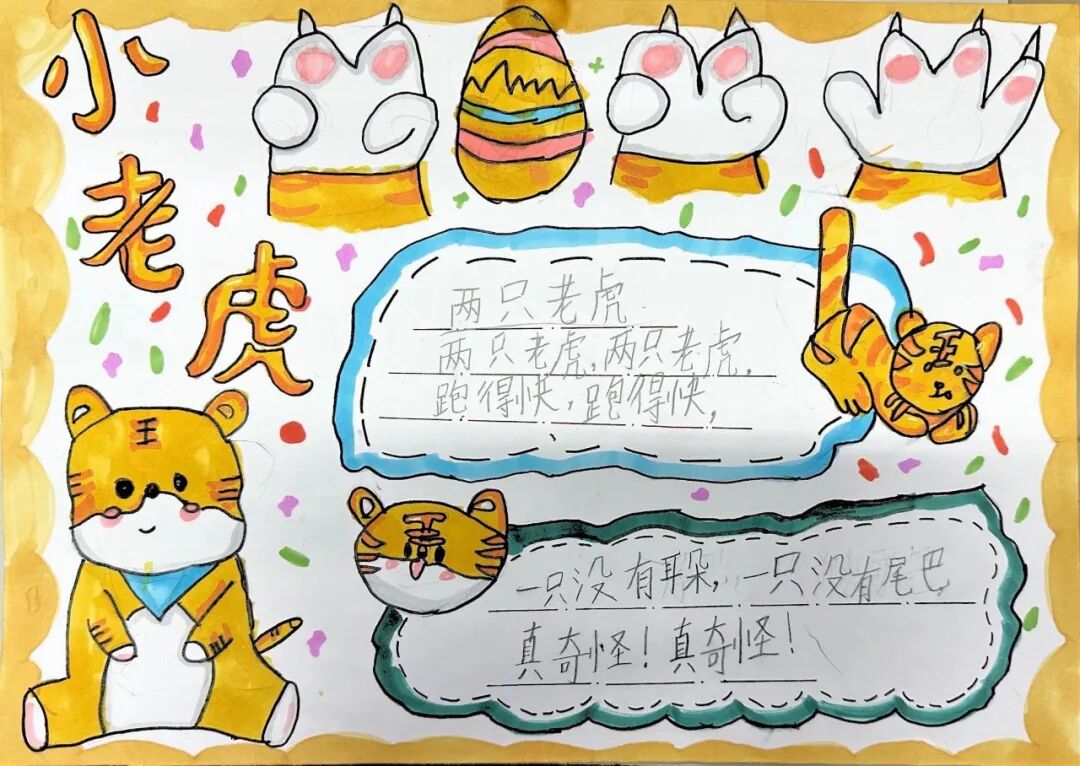 小老虎
两只老虎
两只老虎,两只老虎,
跑得快,跑得快,
一只没有耳朵,一只没有尾巴
真奇怪!真奇怪!
王
王
王